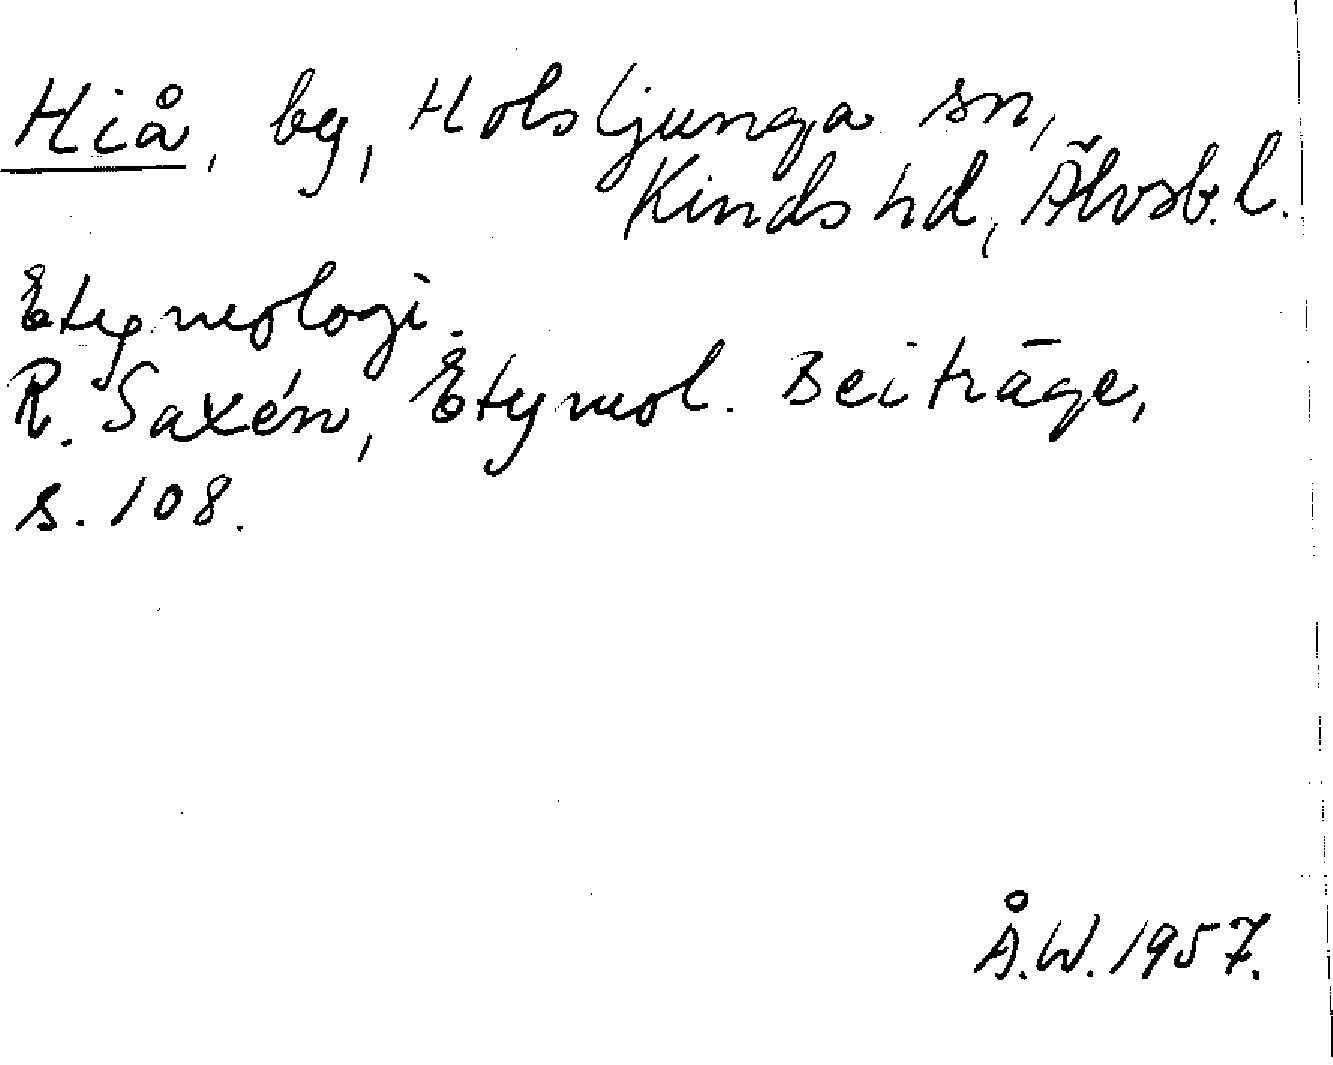 Hiå, by, Holsljunga sn,
Kinds hd, Älvsb. l.
Etymologi.
R. Saxén, Etymol. Beiträge,
s. 108.
Å.W. 1957.